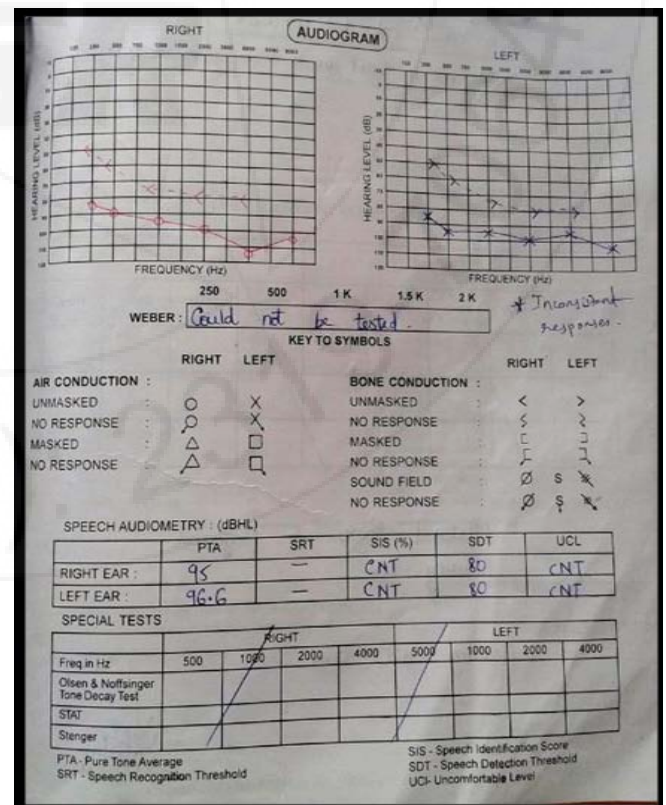 RIGHT
AUDIOGRAM
LEFT
HEARING LEVEL (dB)
HEARING LEVEL (dB)
FREQUENCY (Hz)
FREQUENCY (Hz)
250 500 1 K 1.5 K 2 K
WEBER : Could not be tested.
* Inconsistent responses.
KEY TO SYMBOLS
RIGHT LEFT
RIGHT LEFT
AIR CONDUCTION :
UNMASKED : O X
NO RESPONSE :
MASKED : △ □
NO RESPONSE :
BONE CONDUCTION :
UNMASKED : < >
NO RESPONSE :
MASKED : [ ]
NO RESPONSE :
SOUND FIELD : Ø S
NO RESPONSE : Ø S
SPEECH AUDIOMETRY : (dBHL)
PTA SRT SIS (%) SDT UCL
RIGHT EAR : 95 — CNT 80 CNT
LEFT EAR : 96.6 — CNT 80 CNT
SPECIAL TESTS
RIGHT LEFT
Freq in Hz 500 1000 2000 4000 5000 1000 2000 4000
Olsen & Noffsinger
Tone Decay Test
STAT
Stenger
PTA - Pure Tone Average
SRT - Speech Recognition Threshold
SIS - Speech Identification Score
SDT - Speech Detection Threshold
UCl- Uncomfortable Level